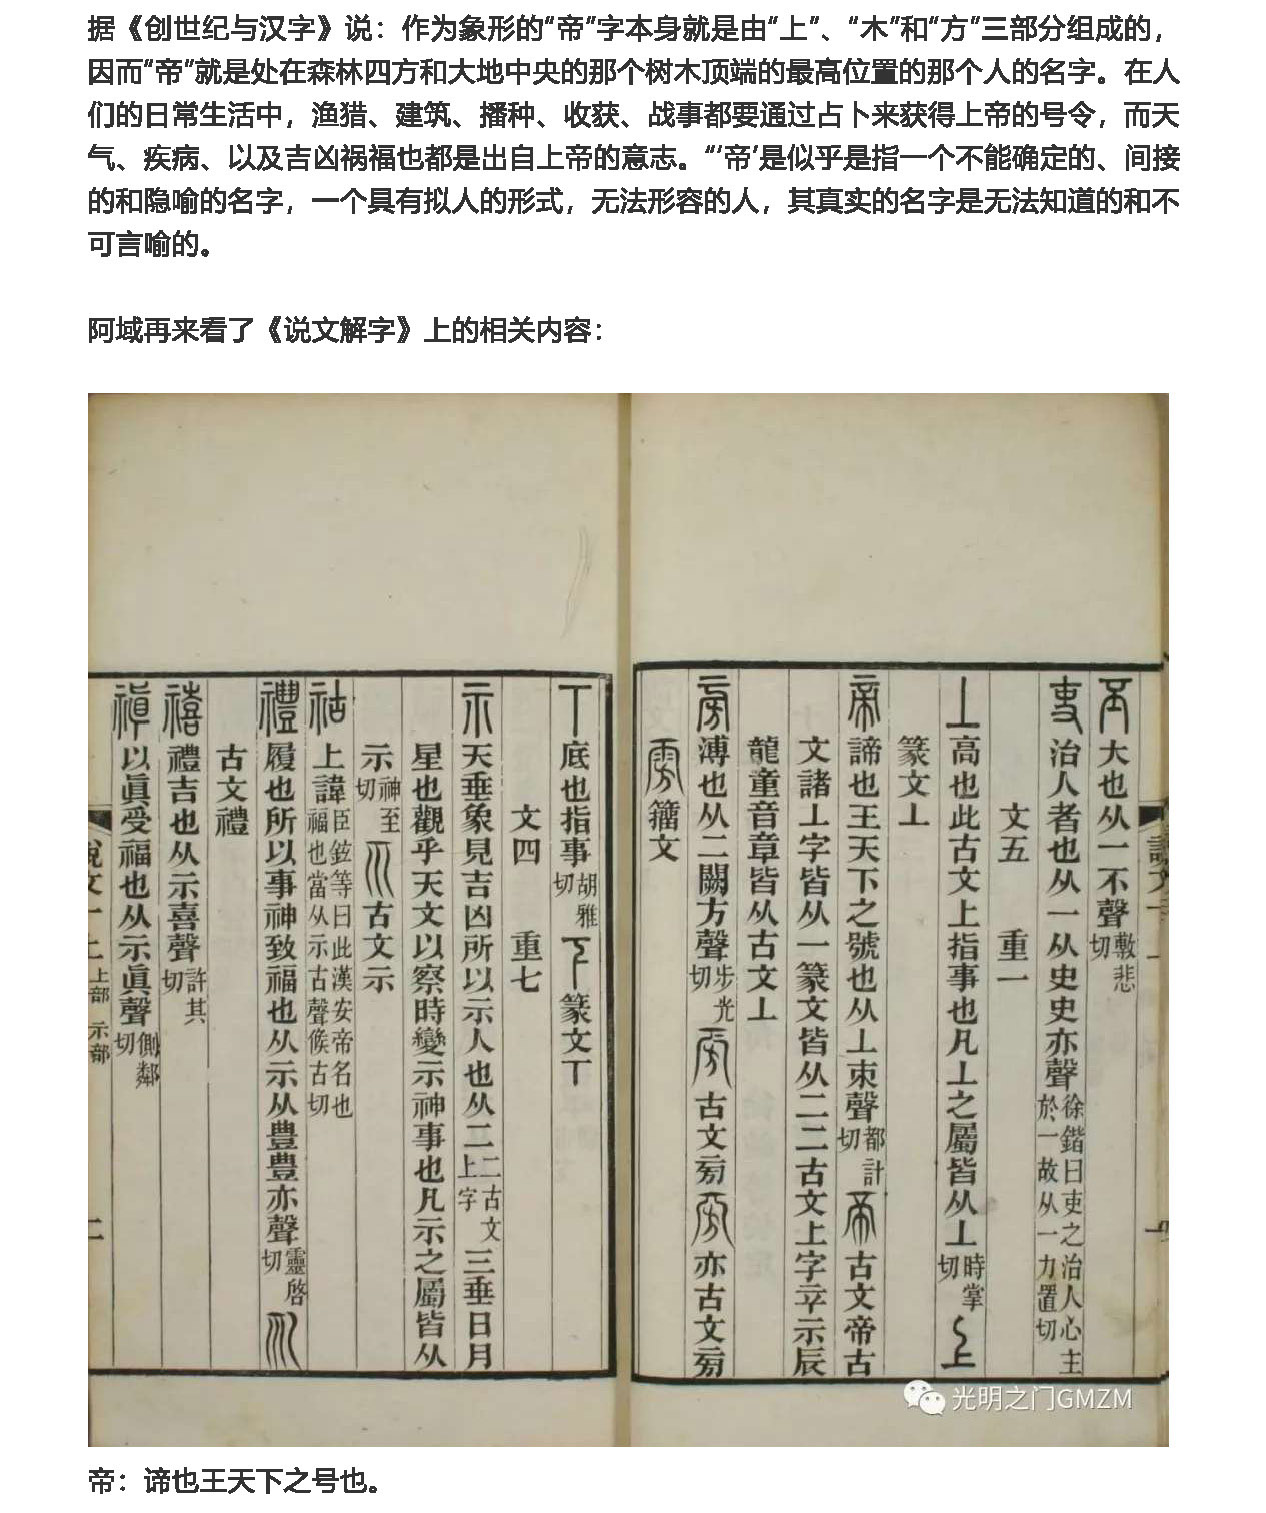 据《创世纪与汉字》说：作为象形的“帝”字本身就是由“上”、“木”和“方”三部分组成的，
因而“帝”就是处在森林四方和大地中央的那个树木顶端的最高位置的那个人的名字。在人
们的日常生活中，渔猎、建筑、播种、收获、战事都要通过占卜来获得上帝的号令，而天
气、疾病、以及吉凶祸福也都是出自上帝的意志。“‘帝’是似乎是指一个不能确定的、间接
的和隐喻的名字，一个具有拟人的形式，无法形容的人，其真实的名字是无法知道的和不
可言喻的。
阿域再来看了《说文解字》上的相关内容：
丕大也从一不聲敷悲切
吏治人者也从一从史史亦聲徐鍇曰吏之治人心主於一故从一力置切
文五 重一
丄高也此古文上指事也凡丄之屬皆从丄時掌切上
篆文丄
帝諦也王天下之號也从丄朿聲都計切帝古文帝古
文諸丄字皆从一篆文皆从二二古文上字䇂示辰
龍童音章皆从古文丄
旁溥也从二闕方聲步光切 古文旁 亦古文旁
雱籀文
丅底也指事胡雅切下篆文丅
文四 重七
示天垂象見吉凶所以示人也从二二古文上字三垂日月
星也觀乎天文以察時變示神事也凡示之屬皆从
示神至切 古文示
祜上諱臣鉉等曰此漢安帝名也福也當从示古聲候古切
禮履也所以事神致福也从示从豊豊亦聲靈啓切
古文禮
禧禮吉也从示喜聲許其切
禛以眞受福也从示眞聲側鄰切
說文一上 上部 示部 二
光明之门GMZM
帝：谛也王天下之号也。